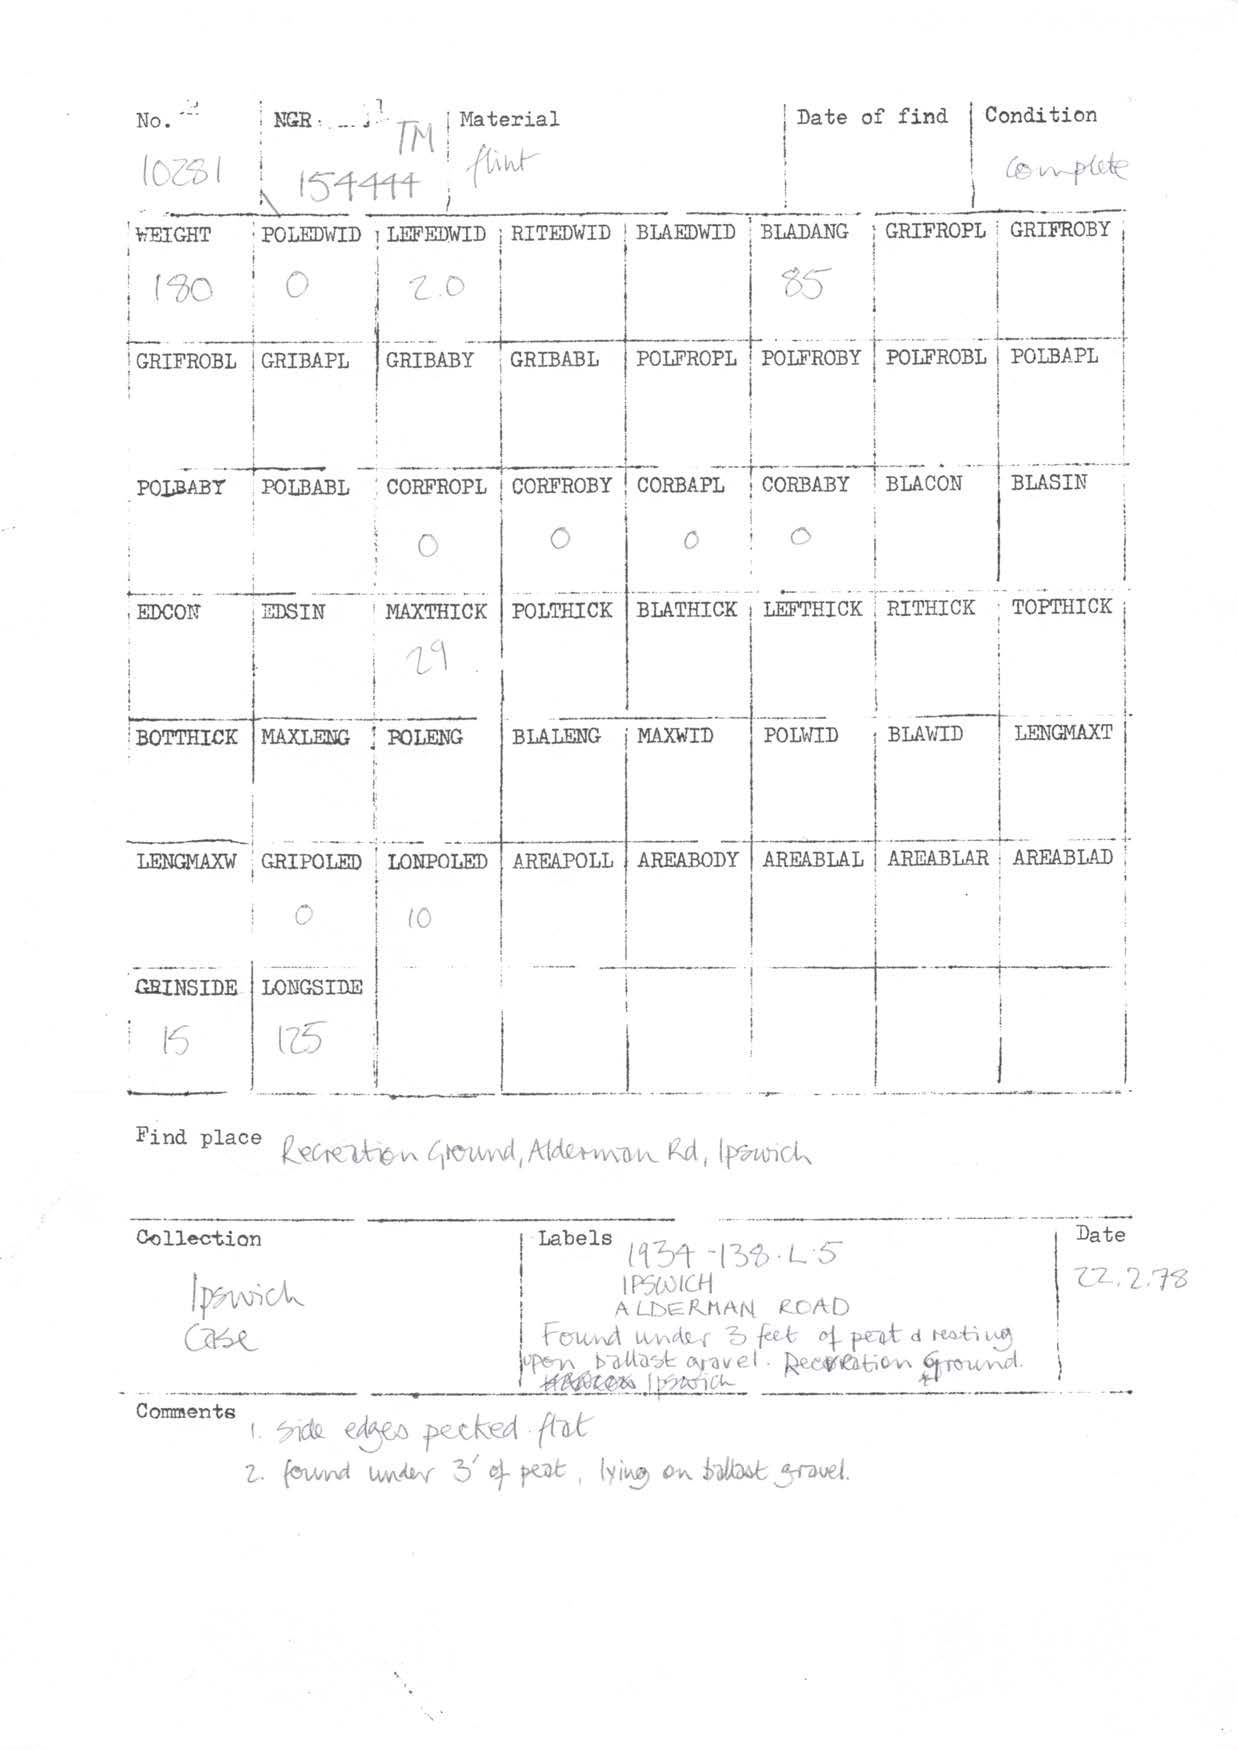 No. NGR Material Date of find Condition
10281 TM 154444 flint complete
WEIGHT POLEDWID LEFEDWID RITEDWID BLAEDWID BLADANG GRIFROPL GRIFROBY
180 0 2.0 85
GRIFROBL GRIBAPL GRIBABY GRIBABL POLFROPL POLFROBY POLFROBL POLBAPL
POLBABY POLBABL CORFROPL CORFROBY CORBAPL CORBABY BLACON BLASIN
0 0 0 0
EDCON EDSIN MAXTHICK POLTHICK BLATHICK LEFTHICK RITHICK TOPTHICK
29
BOTTHICK MAXLENG POLENG BLALENG MAXWID POLWID BLAWID LENGMAXT
LENGMAXW GRIPOLED LONPOLED AREAPOLL AREABODY AREABLAL AREABLAR AREABLAD
0 10
GRINSIDE LONGSIDE
15 125
Find place Recreation Ground, Alderman Rd, Ipswich
Collection Labels Date
Ipswich
Case
1934-138.L.5
IPSWICH
ALDERMAN ROAD
Found under 3 feet of peat & resting
upon ballast gravel. Recreation Ground.
Ipswich
22.2.78
Comments
1. Side edges pecked flat
2. found under 3' of peat, lying on ballast gravel.